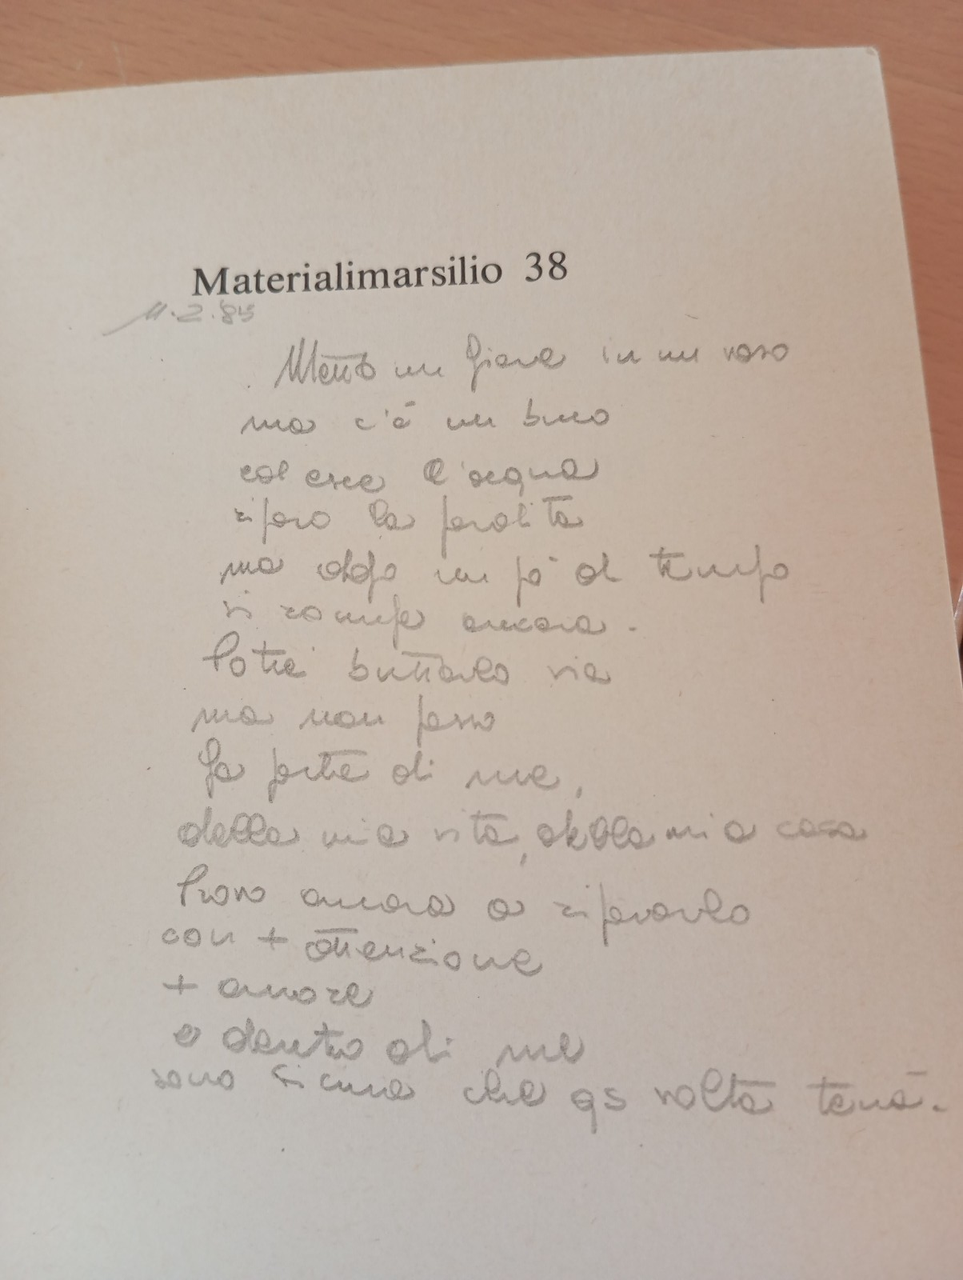 Materialimarsilio 38
11.2.'85
Metto un fiore in un vaso
ma c'è un buco
ed esce l'acqua
riparo la perdita
ma dopo un pò di tempo
si rompe ancora.
Potrei buttarlo via
ma non posso
fa parte di me,
della mia vita, della mia casa
Provo ancora a ripararlo
con + attenzione
+ amore
e dentro di me
sono sicura che qs volta terrà.